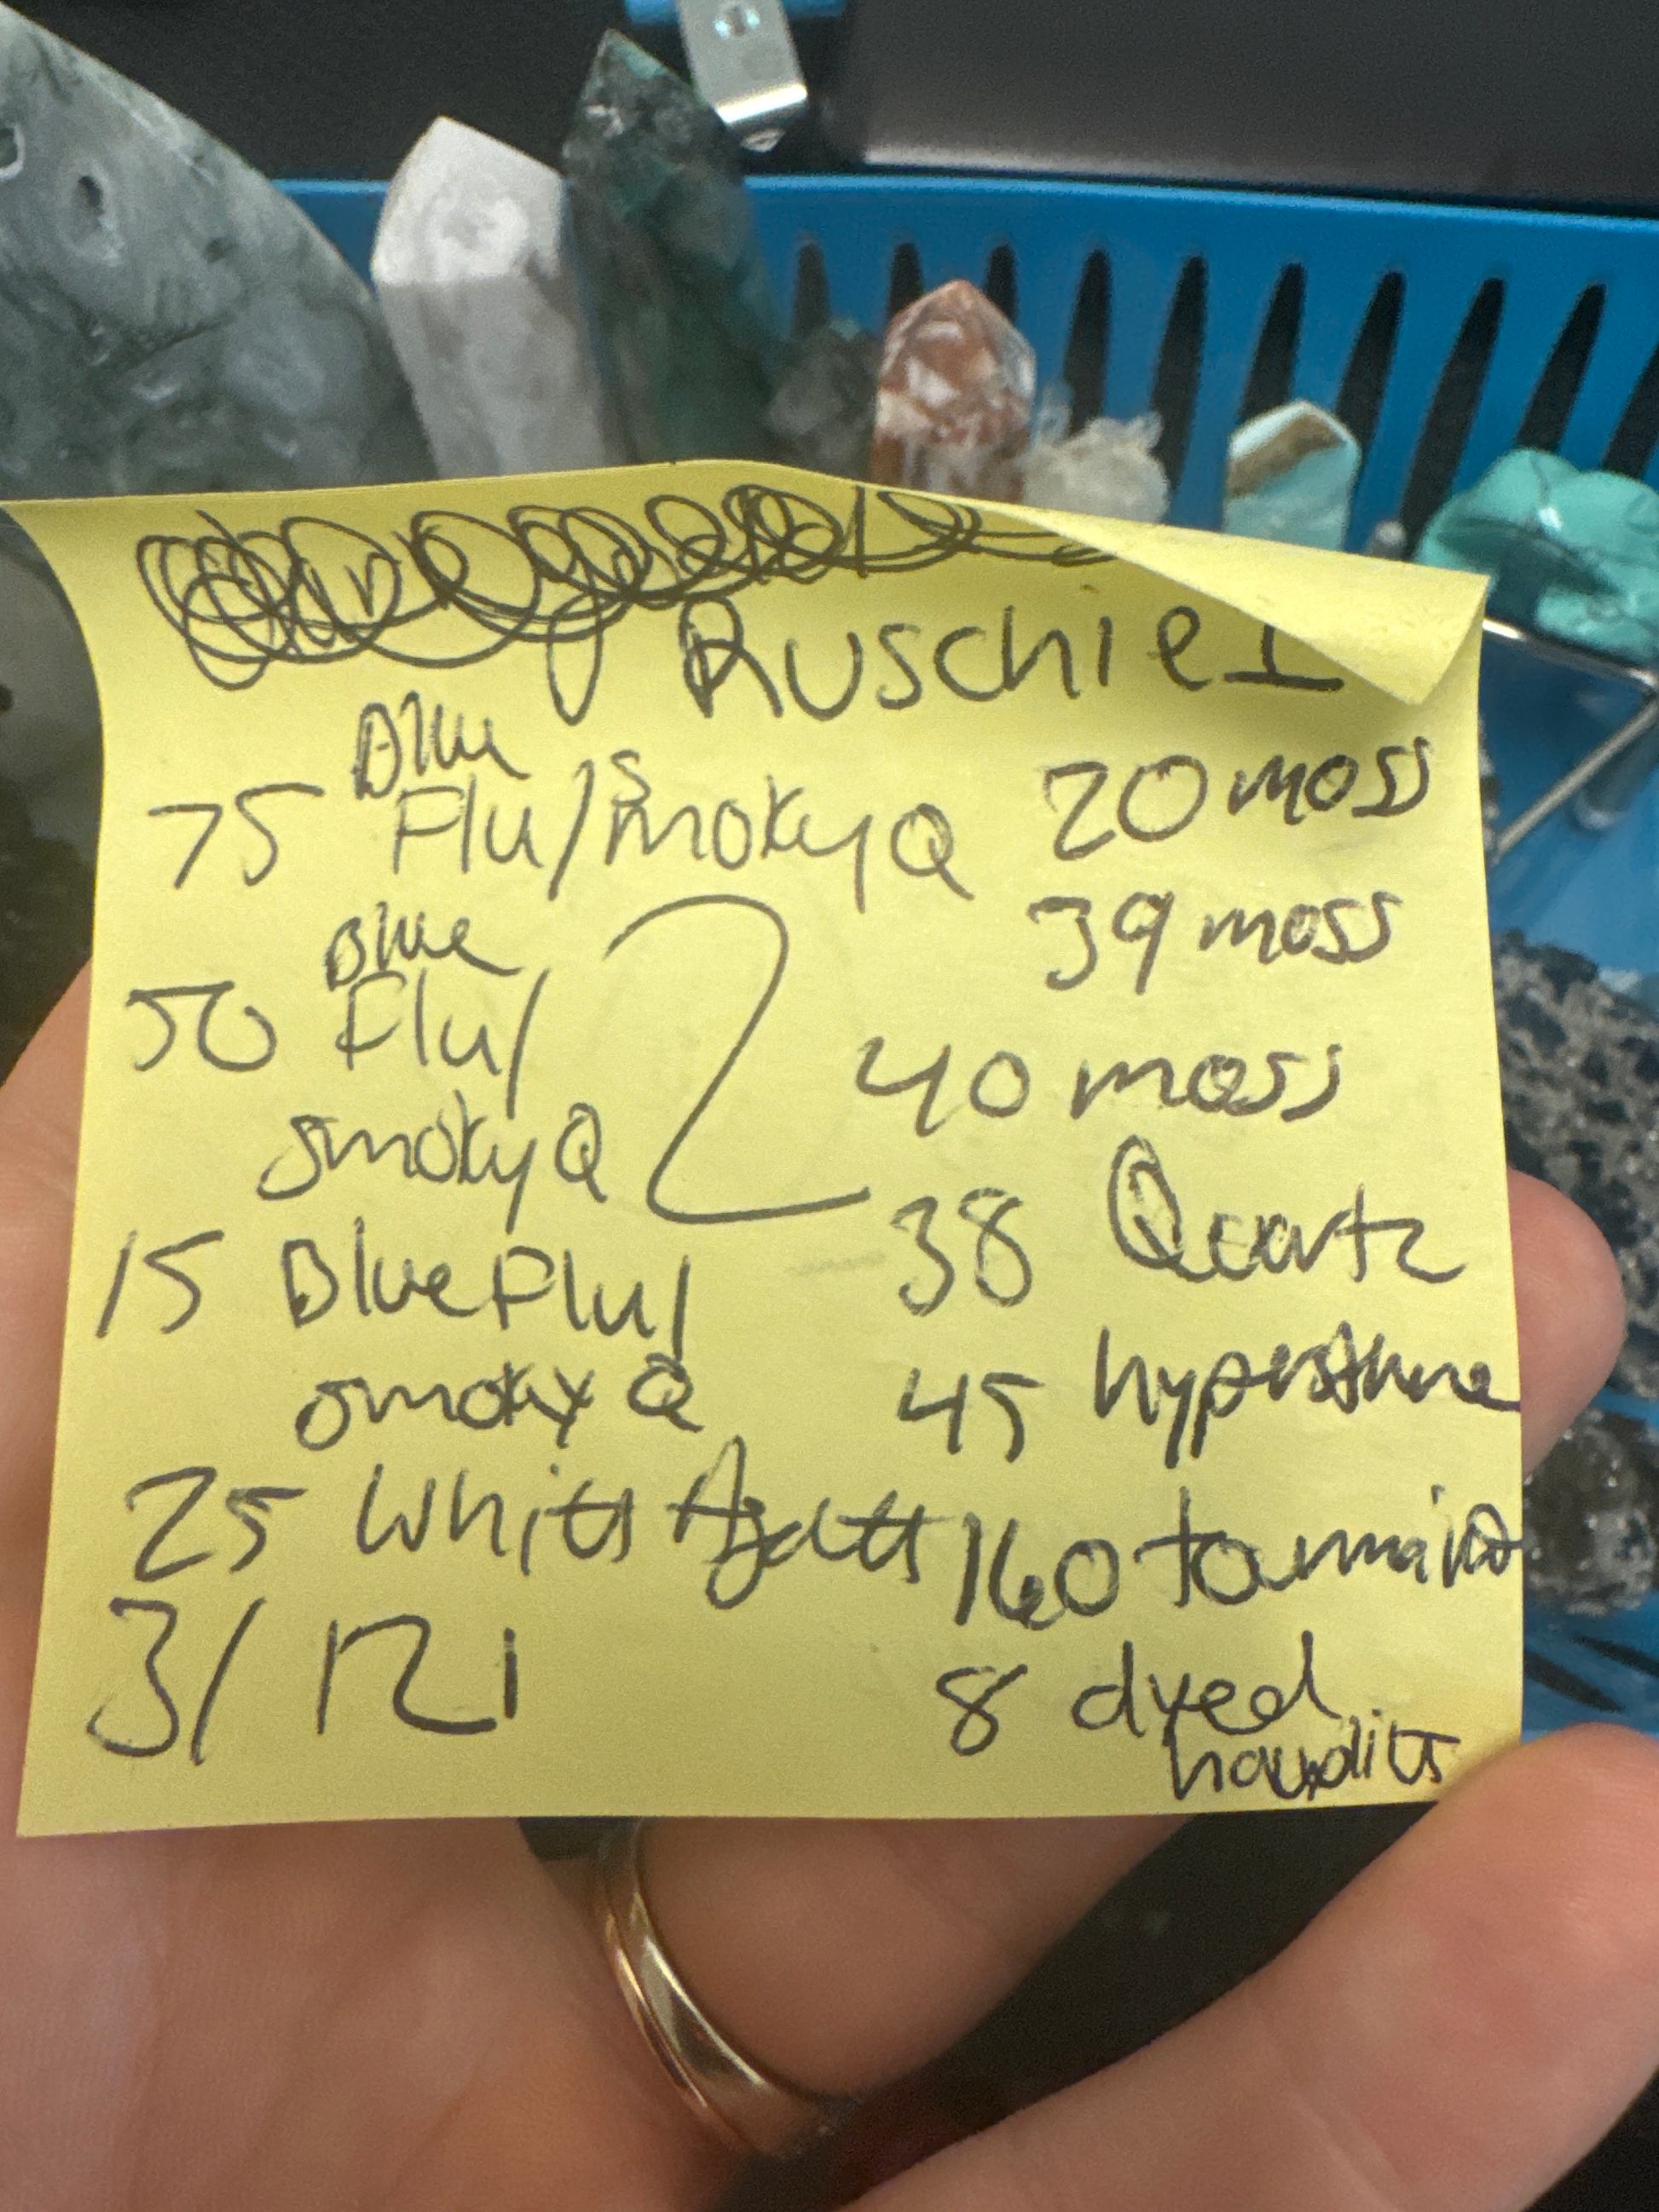 Ruschie1
Blue
75 Flu/smoky Q
Blue
50 Flu/
smoky Q
15 Blue Flu/
smoky Q
25 White Agate
3/121
20 moss
39 moss
40 moss
38 Quartz
45 hypersthene
160
8 dyed